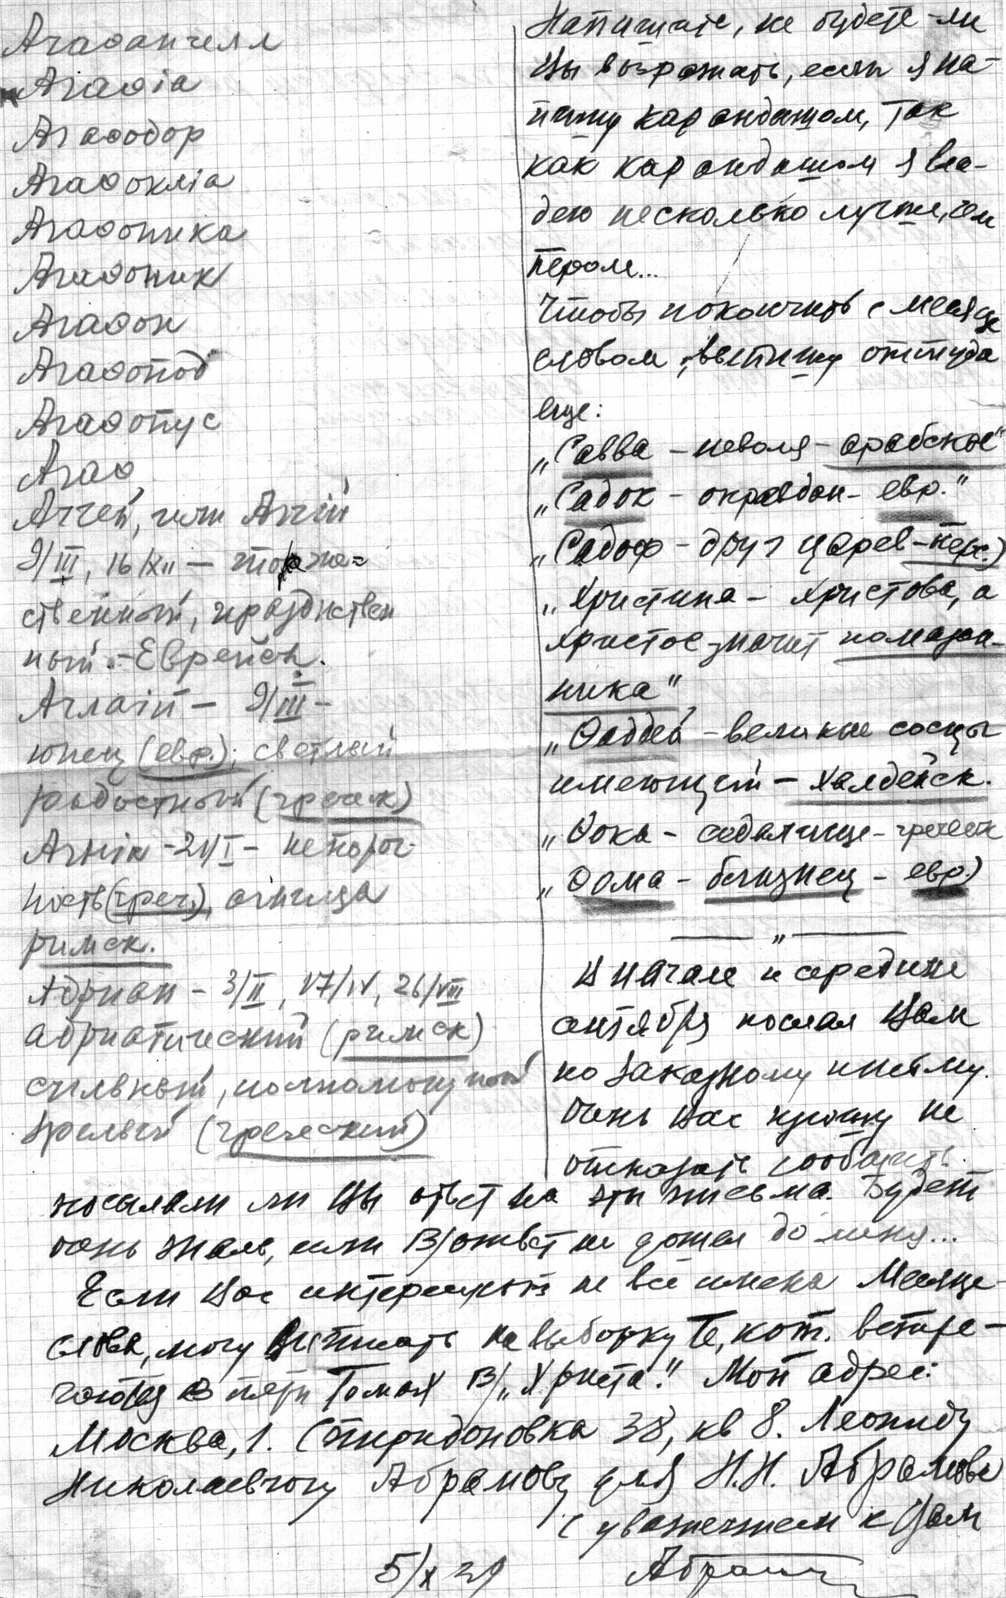 Агаѳангелл
Агаѳіа
Агаѳодор
Агаѳокліа
Агаѳоника
Агаѳоник
Агаѳон
Агаѳопод
Агаѳопус
Агаѳ
Аггей, или Аггій
9/III, 16/XII – торже=
ственный, празднствен
ный – Еврейск.
Аглаій – 9/III –
юнец (евр.); светлый
радостный (греческ)
Агнія – 21/I – непороч-
ность (греч.), агница
римск.
Адриан – 3/II, 17/IV, 26/VIII
адриатический (римск)
сильный, полномощный
зрелый (греческий)
Напишите, не будете-ли
Вы возражать, если я на-
пишу карандашом, так
как карандашом я вла-
дею несколько лучше, чем
пером...
Чтобы покончить с месяце
словом, выпишу оттуда
еще:
„Савва – неволя – арабское"
„Садок – оправдан – евр."
„Садоф – друг царев – перс.)
„Христина – Христова, а
Христос значит помазан-
ника"
„Ѳаддей – великие сосцы
имеющий – халдейск.
„Ѳока – седалище – греческ
„Ѳома – близнец – евр.)
— „ —
В начале и середине
сентября послал Вам
по заказному письму.
Очень Вас прошу не
отказать сообщить
посылали ли Вы ответ на эти письма. Будет
очень жаль, если В/ответ не дошел до меня...
Если Вас интересуют не все имена Месяце-
слова, могу выписать на выборку те, кот. встре-
чаются в пяти томах В/„Христа". Мой адрес:
Москва, 1. Спиридоновка 38, кв 8. Леониду
Николаевичу Абрамову для Н.Н. Абрамова
С уважением к Вам
5/X 29 Абрамов